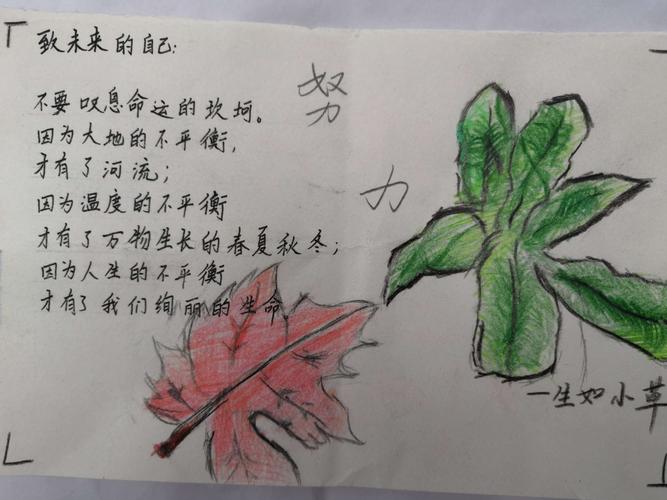 致未来的自己:
不要叹息命运的坎坷。
因为大地的不平衡,
才有了河流;
因为温度的不平衡
才有了万物生长的春夏秋冬;
因为人生的不平衡
才有了我们绚丽的生命。
努
力
一生如小草